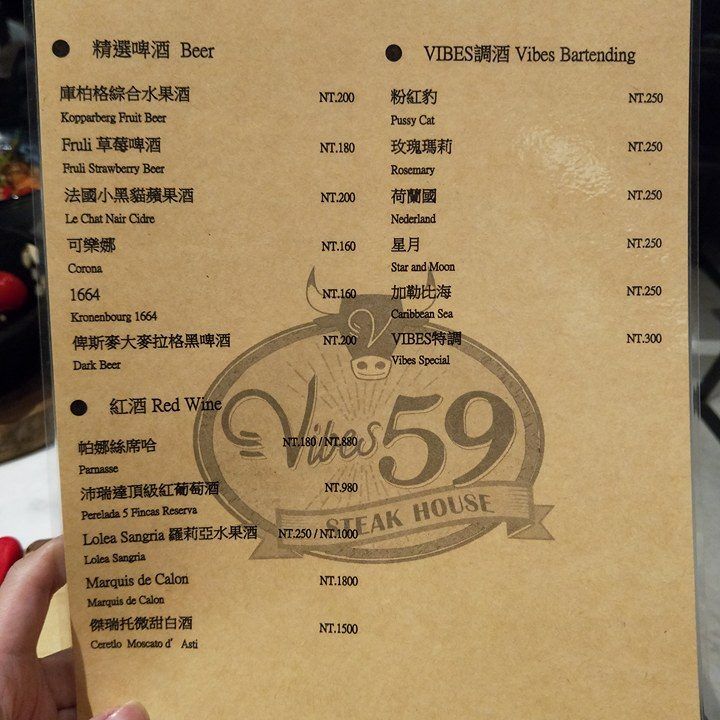 ● 精選啤酒 Beer
庫柏格綜合水果酒 NT.200
Kopparberg Fruit Beer
Fruli 草莓啤酒 NT.180
Fruli Strawberry Beer
法國小黑貓蘋果酒 NT.200
Le Chat Nair Cidre
可樂娜 NT.160
Corona
1664 NT.160
Kronenbourg 1664
俾斯麥大麥拉格黑啤酒 NT.200
Dark Beer
● 紅酒 Red Wine
帕娜絲席哈 NT.180 / NT.880
Parnasse
沛瑞達頂級紅葡萄酒 NT.980
Perelada 5 Fincas Reserva
Lolea Sangria 羅莉亞水果酒 NT.250 / NT.1000
Lolea Sangria
Marquis de Calon NT.1800
Marquis de Calon
傑瑞托微甜白酒 NT.1500
Ceretlo Moscato d' Asti
● VIBES調酒 Vibes Bartending
粉紅豹 NT.250
Pussy Cat
玫瑰瑪莉 NT.250
Rosemary
荷蘭國 NT.250
Nederland
星月 NT.250
Star and Moon
加勒比海 NT.250
Caribbean Sea
VIBES特調 NT.300
Vibes Special
V
Vibes 59
STEAK HOUSE